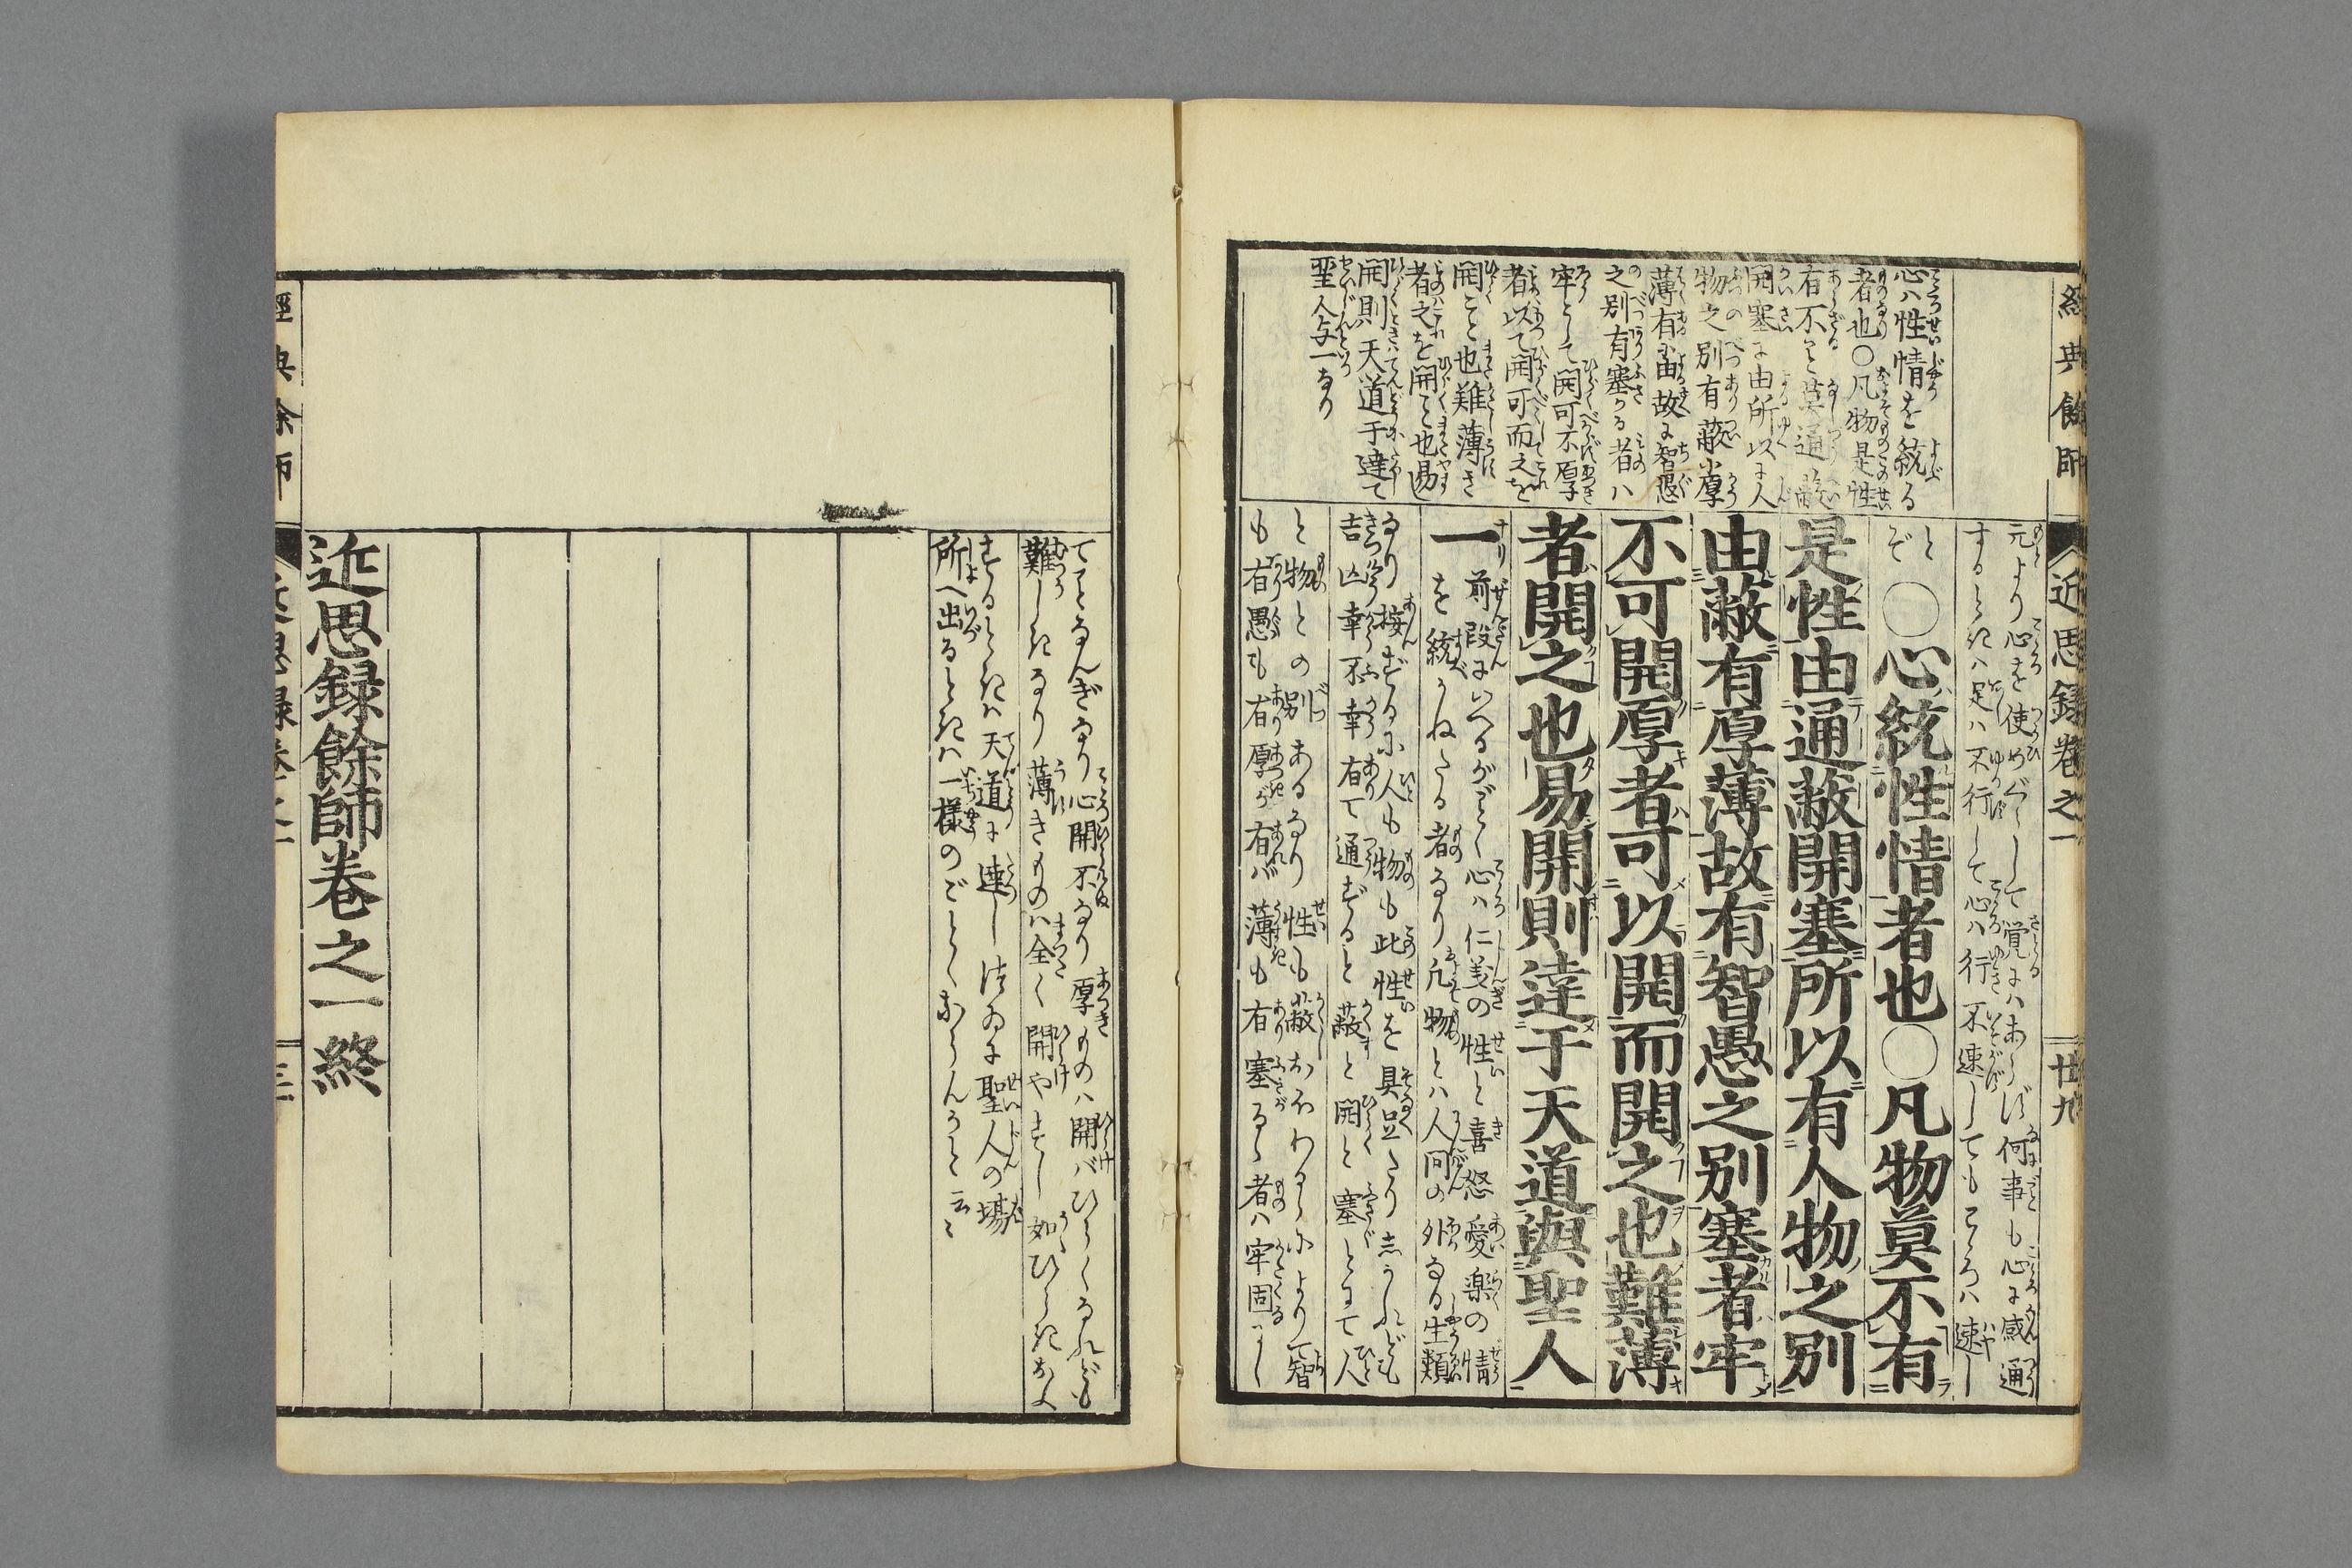 經典餘師
近思録卷之一
廿九
心ハ性情を統る
者也〇凡物是性
有不こと莫通蔽
開塞に由所以に人
物之別有蔽に厚
薄有に由故に智愚
之別有塞る者ハ
牢として開可不厚
者以て開可而之を
開こと也難薄き
者之を開こと也易
開則ハ天道于達て
聖人与一なり
元より心を使めぐらして覚にハあらず何事も心に感通
するときハ足ハ不行して心ハ行不速してもこゝろハ速し
とぞ
〇心統性情者也〇凡物莫不有
是性由通蔽開塞所以有人物之別
由蔽有厚薄故有智愚之別塞者牢
不可開厚者可以開而開之也難薄
者開之也易開則達于天道與聖人
一
前段にいへるがごとく心ハ仁義の性と喜怒愛楽の情
を統かねたる者なり凡物とハ人間の外なる生類
なり按ずるに人も物も此性を具足たりしかれども
吉凶幸不幸有て通ずると蔽と開と塞とにて人
と物との別あるなり性も蔽おほわるゝによりて智
も有愚も有厚が有バ薄も有塞るゝ者ハ牢固らし
てとなんぎなり心開不なり厚ものハ開バひらくるれども
難しきなり薄きものハ全く開やすし如ひらきおよ
するときハ天道に達し終るに聖人の場
所へ出るときハ一様のごとくならんかと云々
近思録餘師卷之一終
經典余師
近思録卷之一
三十